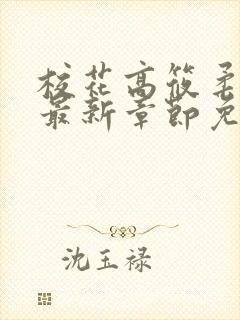 校花高筱柔
最新章節免
沈玉禄